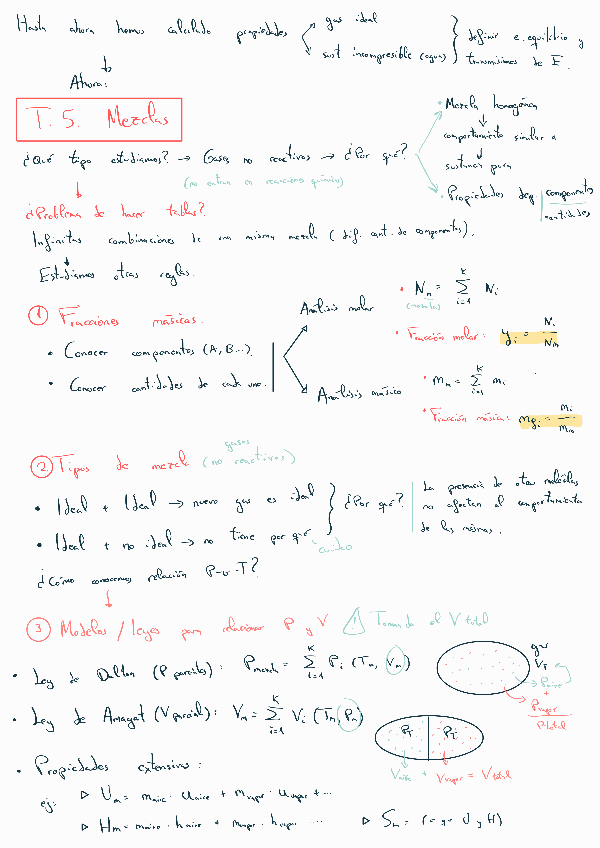 Hasta ahora hemos calculado propiedades
gas ideal
sust incompresible (agua)
definir e. equilibrio y
transmisiones de E.
Ahora:
T. 5. Mezclas
¿Qué tipo estudiamos? → Gases no reactivos → ¿Por qué?
(no entran en reacciones químicas)
• Mezcla homogénea
comportamiento similar a
sustancia pura
• Propiedades dep.
componentes
cantidades
¿Problema de hacer tablas?
Infinitas combinaciones de una misma mezcla (dif. cant. de componentes).
Estudiamos otras reglas.
① Fracciones másicas.
• Conocer componentes (A, B...).
• Conocer cantidades de cada uno.
Análisis molar
• Nm = Σ Ni
K
i=1
• Fracción molar: yi = Ni / Nm
Análisis másico
• mm = Σ mi
K
i=1
• Fracción másica: mfi = mi / mm
② Tipos de mezcla (no reactivos)
gases
• Ideal + Ideal → nuevo gas es ideal
• Ideal + no ideal → no tiene por qué
cuidado
¿Por qué?
La presencia de otras moléculas
no afectan al comportamiento
de las mismas.
¿Cómo conocemos relación P-v-T?
③ Modelos / leyes para relacionar P y V
! Tomando el V total
• Ley de Dalton (P parcial): Pmezcla = Σ Pi (Tm, Vm)
K
i=1
gas
VT
Paire
+
Pvapor
Ptotal
• Ley de Amagat (V parcial): Vm = Σ Vi (Tm, Pm)
K
i=1
PT PT
Vaire + Vvapor = Vtotal
• Propiedades extensivas:
ej: ▷ Um = maire · uaire + mvapor · uvapor + ...
▷ Hm = maire · haire + mvapor · hvapor ...
▷ Sm = (= que U y H)